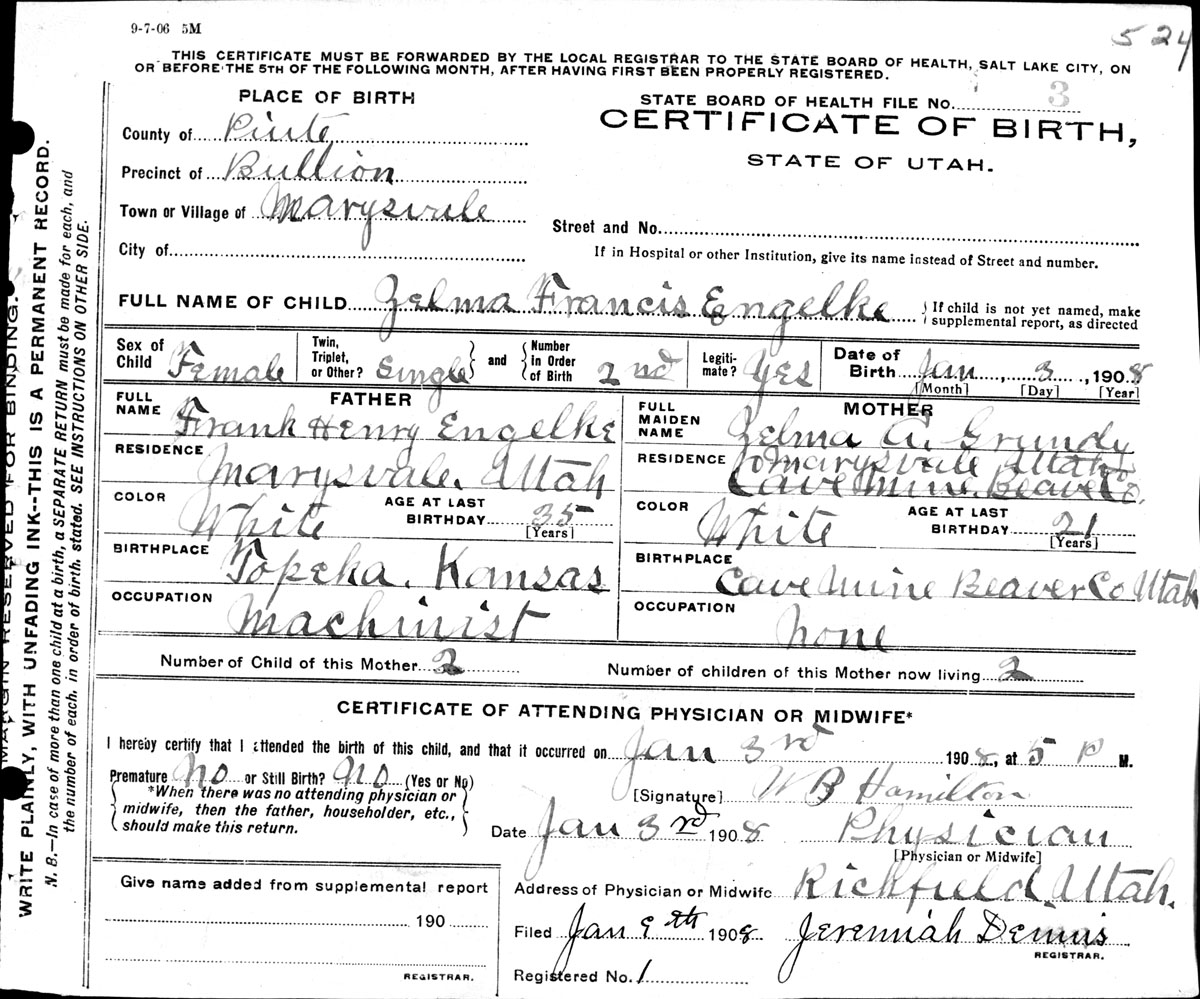 9-7-06 5M
524
THIS CERTIFICATE MUST BE FORWARDED BY THE LOCAL REGISTRAR TO THE STATE BOARD OF HEALTH, SALT LAKE CITY, ON
OR BEFORE THE 5TH OF THE FOLLOWING MONTH, AFTER HAVING FIRST BEEN PROPERLY REGISTERED.
PLACE OF BIRTH
STATE BOARD OF HEALTH FILE NO. 3
CERTIFICATE OF BIRTH,
STATE OF UTAH.
County of Piute
Precinct of Bullion
Town or Village of Marysvale
Street and No.
City of
If in Hospital or other Institution, give its name instead of Street and number.
FULL NAME OF CHILD Zelma Francis Engelke
If child is not yet named, make
supplemental report, as directed
Sex of Child Female
Twin, Triplet, or Other? Single
and Number in Order of Birth 2nd
Legiti- mate? Yes
Date of Birth Jan 3, 1908
[Month] [Day] [Year]
FATHER
FULL NAME Frank Henry Engelke
RESIDENCE Marysvale. Utah
COLOR White
AGE AT LAST BIRTHDAY 35
[Years]
BIRTHPLACE Topeka. Kansas
OCCUPATION Machinist
MOTHER
FULL MAIDEN NAME Zelma A. Grundy
RESIDENCE Marysvale Utah
Cave Mine. Beaver Co.
COLOR White
AGE AT LAST BIRTHDAY 21
[Years]
BIRTHPLACE Cave Mine Beaver Co Utah
OCCUPATION None
Number of Child of this Mother 2
Number of children of this Mother now living 2
CERTIFICATE OF ATTENDING PHYSICIAN OR MIDWIFE*
I hereby certify that I attended the birth of this child, and that it occurred on Jan 3rd 1908, at 5 P M.
Premature No or Still Birth? No (Yes or No)
*When there was no attending physician or
midwife, then the father, householder, etc.,
should make this return.
[Signature] W B Hamilton
Date Jan 3rd 1908 Physician
[Physician or Midwife]
Give name added from supplemental report
190
REGISTRAR.
Address of Physician or Midwife Richfield. Utah.
Filed Jan 9th 1908 Jeremiah Dennis
REGISTRAR.
Registered No. 1
MARGIN RESERVED FOR BINDING.
WRITE PLAINLY, WITH UNFADING INK--THIS IS A PERMANENT RECORD.
N. B.—In case of more than one child at a birth, a SEPARATE RETURN must be made for each, and
the number of each, in order of birth, stated. SEE INSTRUCTIONS ON OTHER SIDE.